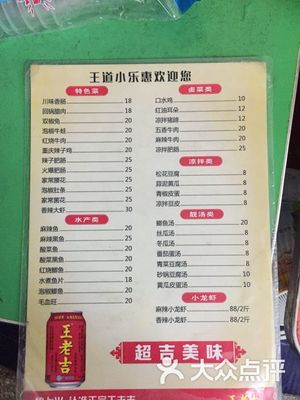 王道小乐惠欢迎您
特色菜
川味香肠 18
回锅腊肉 18
双椒兔 20
泡椒牛蛙 20
红烧牛肉 20
重庆辣子鸡 20
辣子肥肠 20
火爆肥肠 20
家常腰花 20
泡椒肚条 20
家常鳝片 20
香辣大虾 30
水产类
麻辣鱼 20
麻辣黑鱼 20
酸菜鱼 20
酸菜黑鱼 20
红烧鲫鱼 20
水煮鱼片 20
泡椒鲫鱼 20
毛血旺 20
卤菜类
口水鸡 10
红油耳朵 12
凉拌猪蹄 12
五香牛肉 20
麻辣牛肉 20
凉拌肥肠 20
凉拌类
松花豆腐 8
蒜泥黄瓜 8
青椒皮蛋 8
凉拌豆皮 8
靓汤类
鲫鱼汤 20
丝瓜汤 8
冬瓜汤 8
番茄蛋汤 8
青菜豆腐汤 8
砂锅豆腐汤 8
黄瓜皮蛋汤 8
小龙虾
麻辣小龙虾 88/2斤
香辣小龙虾 88/2斤
王老吉
超吉美味
大众点评